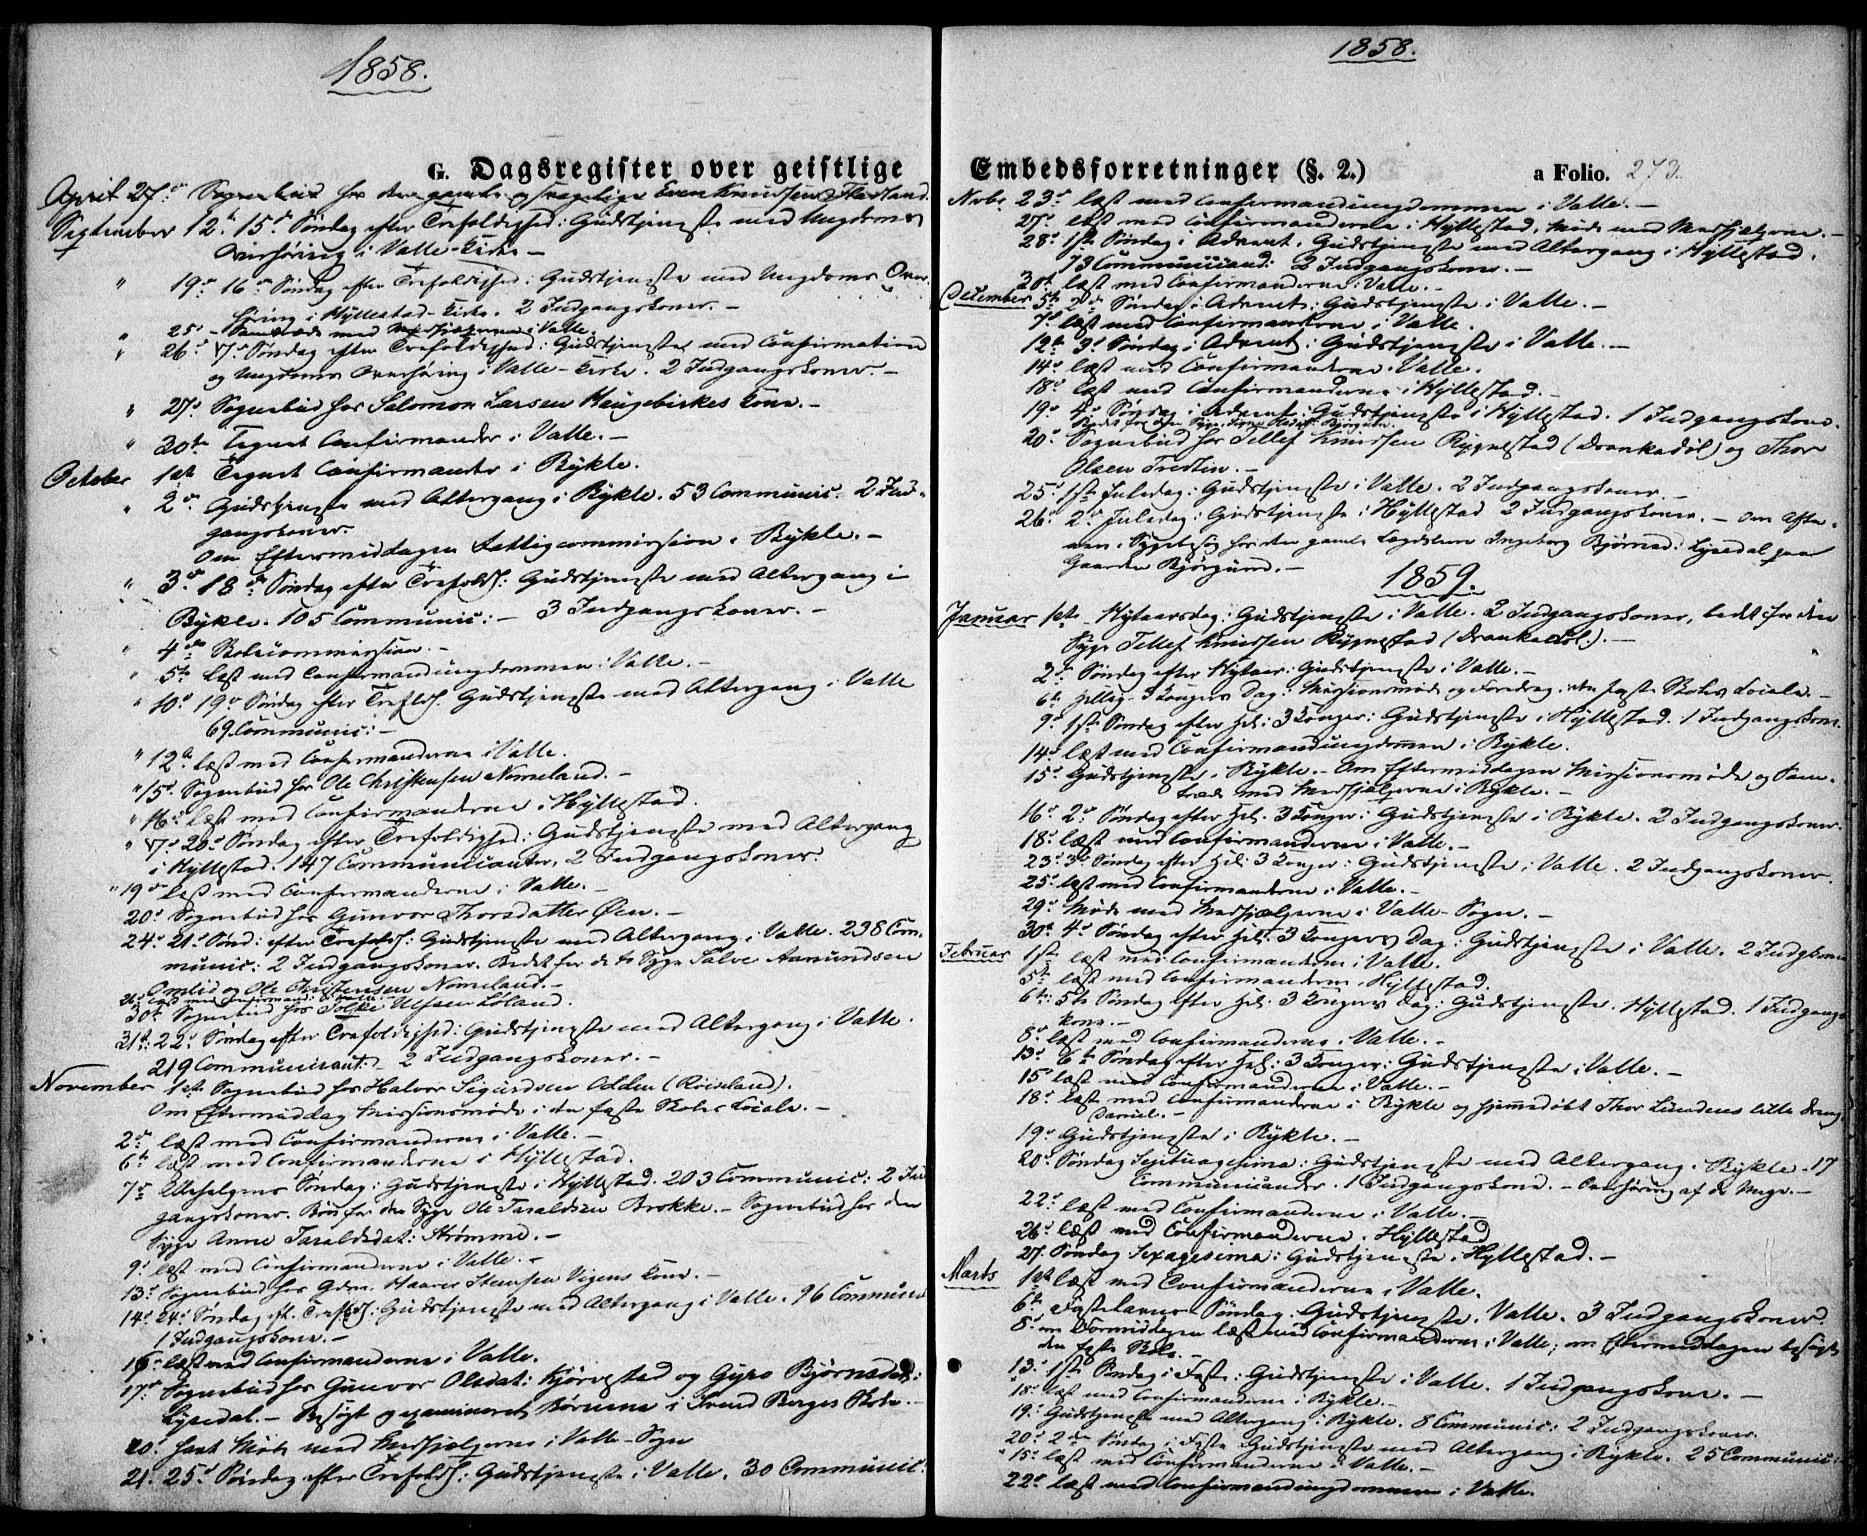 1858.
G. Dagsregister over geistlige
April 27de Sognebud hos den gamle og svagelige Even Knudssen
September 12te 15de Søndag efter Trefoldighed: Gudstjeneste med Ungdoms
Overhøring i Valle-Kirke –
" 19de 16de Søndag efter Trefoldighed: Gudstjeneste med Ungdoms Over-
høring i Hyllestad-Kirke. 2 Indgangskoner. –
" 25de Samraad med Medhjælperne i Valle.
" 26de 17de Søndag efter Trefoldighed: Gudstjeneste med Confirmation
og Ungdoms Overhøring i Valle-Kirke. 2 Indgangskoner. –
" 27de Sognebud hos Salomon Larsen Haugebirkes Kone. –
" 30te Tegnet Confirmander i Valle. –
October 1ste Tegnet Confirmander i Bykle.
" 2den Gudstjeneste med Altergang i Bykle. 53 Communic. 2 Ind-
gangskoner.
Om Eftermiddagen Fattigcommission i Bykle. –
" 3die 18de Søndag efter Trefoldh: Gudstjeneste med Altergang i
Bykle. 105 Communic: – 3 Indgangskoner. –
" 4de Skolecommission. –
" 5te læst med Confirmandungdommen i Valle. –
" 10de 19de Søndag efter Trefoldh. Gudstjeneste med Altergang i Valle
69 Communic: –
" 12te læst med Confirmanderne i Valle.
" 15de Sognebud hos Ole Christensen Nomeland. –
" 16de læst med Confirmanderne i Hyllestad.
" 17de 20de Søndag efter Trefoldighed: Gudstjeneste med Altergang
i Hyllestad. 147 Communicanter, 2 Indgangskoner.
" 19de læst med Confirmanderne i Valle. –
20de Sognebud hos Gunvor Thorsdatter Øen. –
24de 21de Sønd: efter Trefoldh: Gudstjeneste med Altergang i Valle. 238 Com-
munic: 2 Indgangskoner. Bedet for de to Syge Salve Aanundsen
Omlid og Ole Christensen Nomeland. –
26de læst med Confirmand: i Valle. –
30te Sognebud hos Folke Løland.
31te: 22de Søndag efter Trefoldighed: Gudstjeneste med Altergang i Valle.
219 Communicant: 2 Indgangskoner. –
November 1ste Sognebud hos Halvor Sigurdsen Odden (Røisland).
Om Eftermiddag Missionsmøde i den faste Skoles Locale. –
2den læst med Confirmanderne i Valle. –
6te læst med Confirmanderne i Hyllestad.
7de Allehelgens Søndag: Gudstjeneste i Hyllestad. 203 Communic: 2 Ind-
gangskoner. Bøn for den Syge Ole Taraldsen Brokke. – Sognebud hos den
Syge Anne Taraldsdat: Strømme. –
9de læst med Confirmanderne i Valle. –
13de Sognebud hos Haavor Steensen Vigens Kone. –
14de 24de Søndag eft. Trefoldh: Gudstjeneste med Altergang i Valle. 96 Communic
1 Indgangskone. –
16de læst med Confirmanderne i Valle.
17de Sognebud hos Gunvor Olsdat: Kjørvestad og Gyro Bjørnsdat:
Lysedal. – Besøgt og examineret Børnene i Trond Berges Skole. –
20de havt Møde med Medhjælperne i Valle-Sogn
21de 25de Søndag efter Trefoldh: Gudstjeneste i Valle. 30 Communic:
1858.
Embedsforretninger (§. 2.)
a Folio. 273.
Novbr. 23de læst med Confirmandungdommen i Valle. –
27de læst med Confirmanderne i Hyllestad. Møde med Medhjælperne. –
28de 1ste Søndag i Advent. Gudstjeneste med Altergang i Hyllestad.
73 Communicand: 2 Indgangskoner. –
30te læst med Confirmanderne i Valle. –
December 5te 2den Søndag i Advent: Gudstjeneste i Valle. –
7de læst med Confirmanderne i Valle.
12te 3die Søndag i Advent: Gudstjeneste i Valle. –
14de læst med Confirmanderne i Valle.
18de læst med Confirmanderne i Hyllestad. –
19de 4de Søndag i Advent: Gudstjeneste i Hyllestad. 1 Indgangskone.
20de Sognebud hos Tellef Knudssen Rygnestad (Drankedøl) og Thor
Olsen Trestin. –
25de 1ste Juledag: Gudstjeneste i Valle. 2 Indgangskoner. –
26de 2den Juledag: Gudstjeneste i Hyllestad 2 Indgangskoner. – Om Afte-
nen i Sygebesøg hos den gamle Lægdslem Ingeborg Bjørnsd: Lysedal paa
Gaarden Bjørgum. –
1859.
Januar 1ste Nytaarsdag: Gudstjeneste i Valle. 2 Indgangskoner, bedt for den
Syge Tellef Knudssen Rygnestad (Drankedøl). –
2den Søndag efter Nytaar: Gudstjeneste i Valle. –
6te Hellig-3 Kongers Dag: Missionsmøde og Foredrag i den faste Skoles Locale. –
9de 1ste Søndag efter Hel: 3 Konger: Gudstjeneste i Hyllestad. 1 Indgangskone.
14de læst med Confirmandungdommen i Bykle.
15de Gudstjeneste i Bykle. – Om Eftermiddagen Missionsmøde og Sam-
raad med Medhjælperne i Bykle. –
16de 2den Søndag efter Hel. 3 Konger: Gudstjeneste i Bykle. 2 Indgangskoner.
18de læst med Confirmanderne i Valle. –
23de 3die Søndag efter Hel: 3 Konger: Gudstjeneste i Valle. 2 Indgangskoner.
25de læst med Confirmanderne i Valle. –
29de Møde med Medhjælperne i Valle-Sogn. –
30te 4de Søndag efter Hel: 3 Kongers Dag: Gudstjeneste i Valle. 2 Indgskoner
Februar 1ste læst med Confirmanderne i Valle.
5te læst med Confirmanderne i Hyllestad.
6te: 5te Søndag efter Hel: 3 Kongers Dag: Gudstjeneste i Hyllestad. 1 Indgangs-
kone. –
8de læst med Confirmanderne i Valle. –
13de 6te Søndag efter Hel: 3 Konger: Gudstjeneste i Valle. –
15de læst med Confirmanderne i Valle. –
18de læst med Confirmanderne i Bykle og hjemmedøbt Thor Lundens lille Dreng
Daniel. –
19de Gudstjeneste i Bykle. –
20de Søndag Septuagesima: Gudstjeneste med Altergang i Bykle. 17
Communicander. 1 Indgangskone. – Overhøring af de Unge. –
22de læst med Confirmanderne i Valle. –
26de læst med Confirmanderne i Hyllestad
27de Søndag Sexagesima: Gudstjeneste i Hyllestad. –
Marts 1ste læst med Confirmanderne i Valle.
6te Fastelavns-Søndag: Gudstjeneste i Valle. 3 Indgangskoner.
8de om Formiddagen læst med Confirmanderne i Valle; om Eftermiddagen besøgt
den faste Skole. –
13de 1ste Søndag i Faste: Gudstjeneste i Valle. 1 Indgangskone. –
18de læst med Confirmanderne i Bykle. –
19de Gudstjeneste med Altergang i Bykle. 8 Communic: 2 Indgangskoner.
20de 2den Søndag i Faste Gudstjeneste med Altergang i Bykle. 25 Communic:
15de læst med Confirmanderne i Valle. –
22de læst med Confirmandungdommen i Valle.